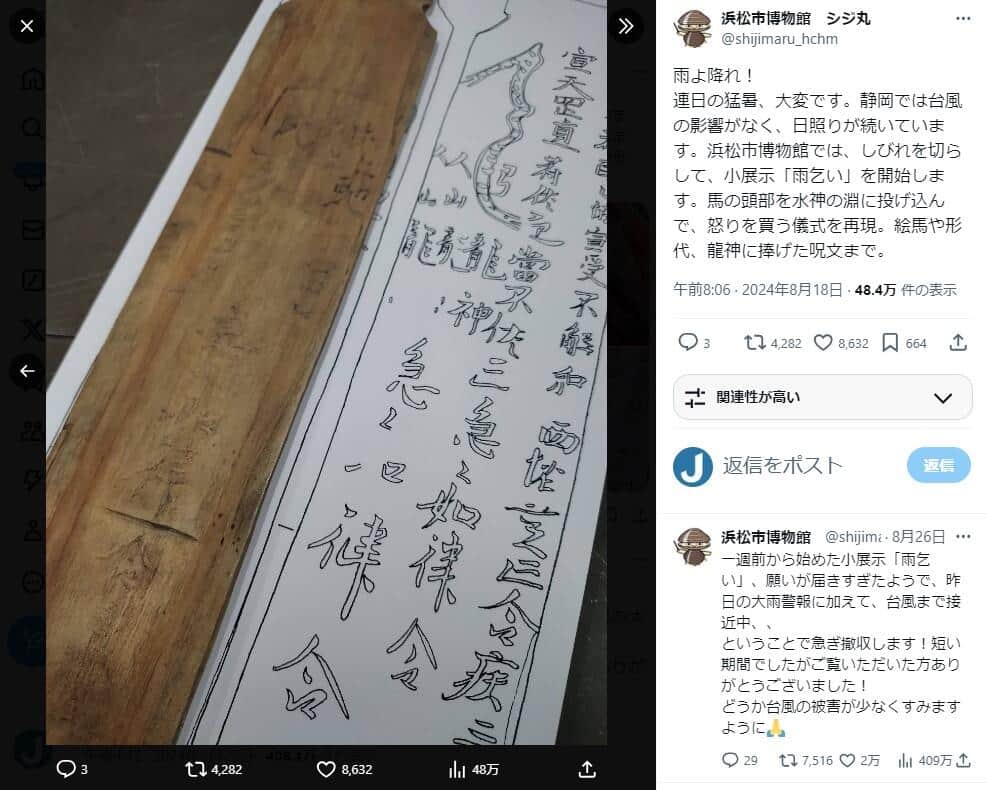 宣天罡直符佐之當不佐三急〻如律令
龍神
急〻
一口
律
令
3
4,282
8,632
48万
浜松市博物館 シジ丸
@shijimaru_hchm
雨よ降れ！
連日の猛暑、大変です。静岡では台風
の影響がなく、日照りが続いていま
す。浜松市博物館では、しびれを切ら
して、小展示「雨乞い」を開始しま
す。馬の頭部を水神の淵に投げ込ん
で、怒りを買う儀式を再現。絵馬や形
代、龍神に捧げた呪文まで。
午前8:06 · 2024年8月18日 · 48.4万 件の表示
3 4,282 8,632 664
関連性が高い
返信をポスト
返信
浜松市博物館 @shijima · 8月26日
一週前から始めた小展示「雨乞
い」、願いが届きすぎたようで、昨
日の大雨警報に加えて、台風まで接
近中、、
ということで急ぎ撤収します！短い
期間でしたがご覧いただいた方あり
がとうございました！
どうか台風の被害が少なくすみます
ように🙏
29 7,516 2万 409万